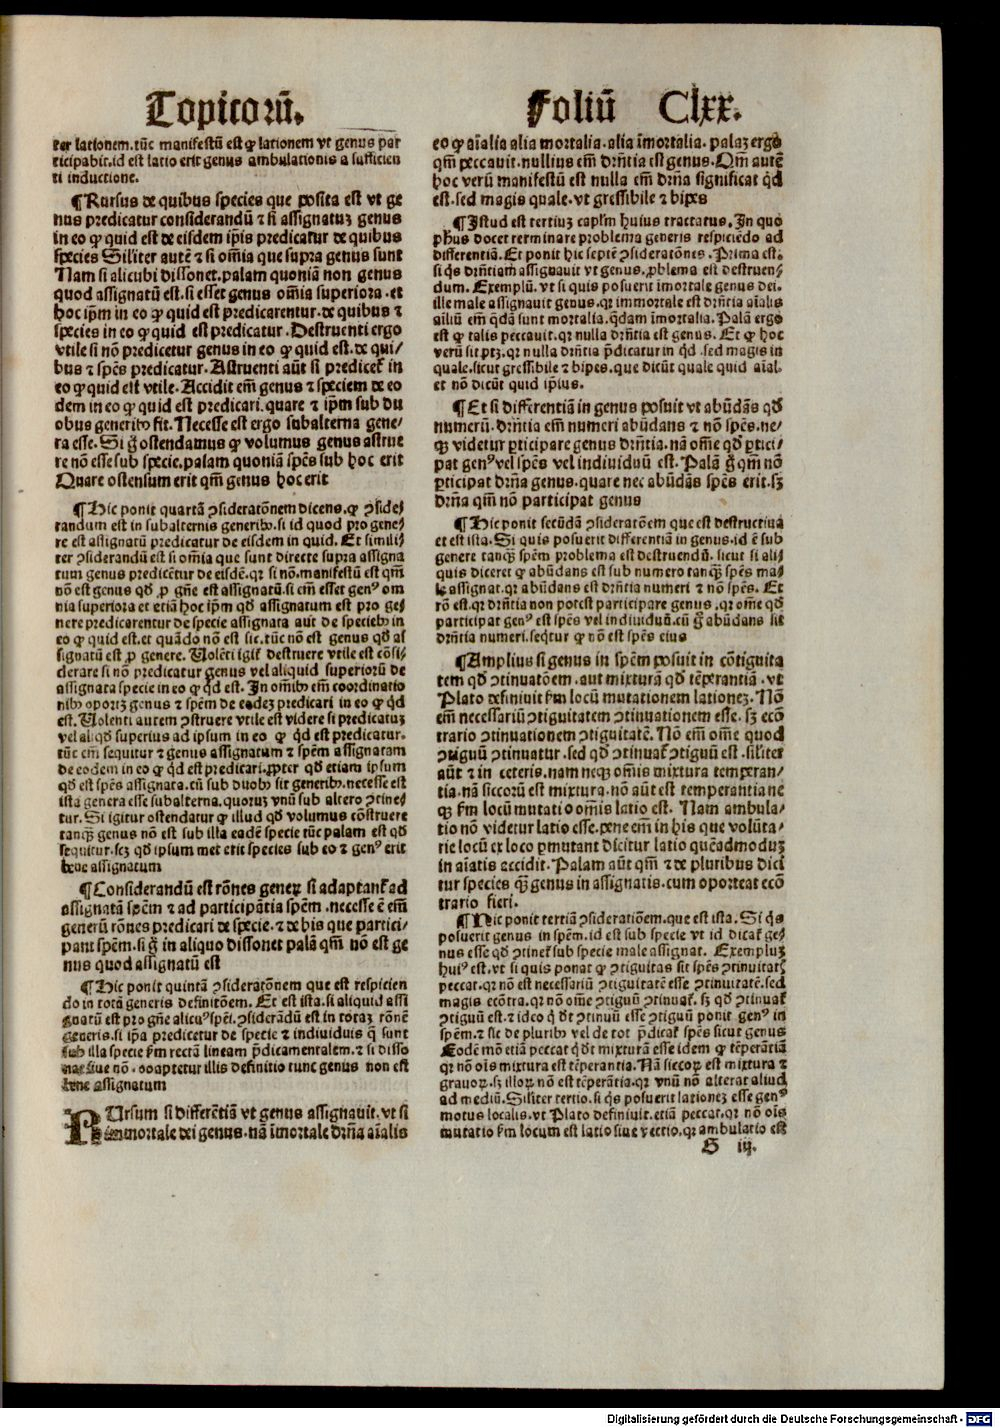 Topicorū.
ter lationem. tūc manifestū est ꝙ lationem vt genus par
ticipabit. id est latio erit genus ambulationis a sufficien
ti inductione.
¶ Rursus de quibus species que posita est vt ge
nus predicatur considerandū ⁊ si assignatuꝫ genus
in eo ꝙ quid est de eisdem ip̄is predicatur de quibus
species Siliter autē ⁊ si om̄ia que supra genus sunt
Nam si alicubi dissonet. palam quoniā non genus
quod assignatū est. si esset genus om̄ia superiora. et
hoc ip̄m in eo ꝙ quid est predicarentur. de quibus ⁊
species in eo ꝙ quid est predicatur. Destruenti ergo
vtile si nō predicetur genus in eo ꝙ quid est. de qui/
bus ⁊ spēs predicatur. Astruenti aūt si predicet̄ in
eo ꝙ quid est vtile. Accidit em̄ genus ⁊ speciem de eo
dem in eo ꝙ quid est predicari. quare ⁊ ip̄m sub du
obus generibꝰ fit. Necesse est ergo subalterna gene/
ra esse. Si g̊ ostendamus ꝙ volumus genus astrue
re nō esse sub specie. palam quoniā spēs sub hoc erit
Quare ostensum erit qm̄ genus hoc erit
¶ Hic ponit quartā ꝯsideratōnem dicens. ꝙ ꝯside⸗
randum est in subalternis generibꝰ. si id quod pro gene⸗
re est assignatū predicatur de eisdem in quid. Et simili⸗
ter ꝯsiderandū est si om̄ia que sunt directe supra assigna
tum genus predicētur de eisdē. qꝛ si nō. manifestū est qm̄
nō est genus qd̄ ꝓ gn̄e est assignatū. si em̄ esset genꝰ om
nia superiora et etiā hoc ip̄m qd̄ assignatum est pro ge⸗
nere predicarentur de specie assignata aut de speciebꝰ in
eo ꝙ quid est. et quādo nō est sic. tūc nō est genus qd̄ as
signatū est ꝓ genere. Volēti igit̄ destruere vtile est cōsi⸗
derare si nō predicatur genus vel aliquid superiorū de
assignata specie in eo ꝙ qd̄ est. In om̄ibꝰ em̄ coordinatio
nibꝰ oporꝫ genus ⁊ spēm de eodeꝫ predicari in eo ꝙ qd̄
est. Volenti autem ꝯstruere vtile est videre si predicatuꝫ
vel aliqd̄ superius ad ipsum in eo ꝙ qd̄ est predicatur.
tūc em̄ sequitur ⁊ genus assignatum ⁊ spēm assignatam
de eodem in eo ꝙ qd̄ est predicari. ꝓpter qd̄ etiam ipsum
qd̄ est spēs assignata. cū sub duobꝰ sit generibꝰ. necesse est
ista genera esse subalterna. quoruꝫ vnū sub altero ꝯtine⸗
tur. Si igitur ostendatur ꝙ illud qd̄ volumus cōstruere
tanqꝫ genus nō est sub illa eadē specie tūc palam est qd̄
sequitur. scꝫ qd̄ ipsum met erit species sub eo ⁊ genꝰ erit
bene assignatum
¶ Considerandū est rōnes geneꝝ si adaptant̄ ad
assignatā spēm ⁊ ad participātia spēm. necesse ē em̄
generū rōnes predicari de specie. ⁊ de his que partici⸗
pant spēm. si g̊ in aliquo dissonet palā qm̄ nō est ge
nus quod assignatū est
¶ Hic ponit quintā ꝯsideratōnem que est respicien
do in totā generis definitōem. Et est ista. si aliquid assi
gnatū est pro gn̄e alicuꝰ spēi. ꝯsiderādū est in totaꝫ rōnē
generis. si ip̄a predicetur de specie ⁊ indiuiduis q̄ sunt
sub illa specie ẜm rectā lineam p̄dicamentalem. ⁊ si disso
nat siue nō coaptetur illis definitio tunc genus non est
bene assignatum
RUrsum si differētiā vt genus assignauit. vt si
immortale dei genus. nā īmortale dr̄n̄a aīalis
Foliū Clxx.
eo ꝙ aīalia alia mortalia. alia īmortalia. palaꝫ ergo
qm̄ peccauit. nullius em̄ dr̄ntia est genus. Qm̄ autē
hoc verū manifestū est nulla em̄ dr̄na significat qd̄
est. sed magis quale. vt gressibile ⁊ bipes
¶ Istud est tertiuꝫ caplm̄ huius tractatus. In quo
ph̄us docet terminare problema generis respiciēdo ad
differentiā. Et ponit hic septē ꝯsideratōnes. Prima est.
si qͥs dr̄ntiam assignauit vt genus. ꝓblema est destruen⸗
dum. Exemplū. vt si quis posuerit īmortale genus dei.
ille male assignauit genus. qꝛ immortale est dr̄ntia aīalis
aīliū em̄ qd̄ā sunt mortalia. qd̄am īmortalia. Palā ergo
est ꝙ talis peccauit. qꝛ nulla dr̄ntia est genus. Et ꝙ hoc
verū sit ptꝫ. qꝛ nulla dr̄ntia p̄dicatur in qd̄. sed magis in
quale. sicut gressibile ⁊ bipes. que dicūt quale quid aīal.
et nō dicūt quid ip̄ius.
¶ Et si differentiā in genus posuit vt abūdās qd̄
numerū. dr̄ntia em̄ numeri abūdans ⁊ nō spēs. ne⸗
qꝫ videtur ꝑticipare genus dr̄ntia. nā om̄e qd̄ ꝑtici⸗
pat genꝰ vel spēs vel indiuiduū est. Palā g̊ qm̄ nō
ꝑticipat dr̄na genus. quare nec abūdās spēs erit. sꝫ
dr̄na qm̄ nō participat genus
¶ Hic ponit secūdā ꝯsideratōem que est destructiua
et est ista. Si quis posuerit differentiā in genus. id ē sub
genere tanqꝫ spēm problema est destruendū. sicut si ali⸗
quis diceret ꝙ abūdans est sub numero tanqꝫ spēs ma⸗
le assignat. qꝛ abūdans est dr̄ntia numeri ⁊ nō spēs. Et
rō est. qꝛ dr̄ntia non potest participare genus. qꝛ om̄e qd̄
participat genꝰ est spēs vel indiuiduū. cū g̊ abūdans sit
dr̄ntia numeri. seqͥtur ꝙ nō est spēs eius
¶ Amplius si genus in spēm posuit in cōtiguita
tem qd̄ ꝯtinuatōem. aut mixturā qd̄ tēperantiā. vt
Plato definiuit ẜm locū mutationem lationeꝫ. Nō
em̄ necessariū ꝯtiguitatem ꝯtinuationem esse. sꝫ ecō
trario ꝯtinuationem ꝯtiguitatē. Nō em̄ ome quod
ꝯtiguū ꝯtinuatur. sed qd̄ ꝯtinuat̄ ꝯtiguū est. siliter
aūt ⁊ in ceteris. nam neqꝫ om̄is mixtura temperan⸗
tia. nā siccorū est mixtura. nō aūt est temperantia ne
qꝫ ẜm locū mutatio om̄is latio est. Nam ambula⸗
tio nō videtur latio esse. pene em̄ in his que volūta⸗
rie locū ex loco ꝑmutant dicitur latio quēadmoduꝫ
in aīatis accidit. Palam aūt qm̄ ⁊ de pluribus dici
tur species qꝫ genus in assignatis. cum oporteat ecō
trario fieri.
¶ Hic ponit tertiā ꝯsiderationē. que est ista. Si qͥs
posuerit genus in spēm. id est sub specie vt id dicat̄ ge⸗
nus esse qd̄ ꝯtinet̄ sub specie male assignat. Exempluꝫ
huiꝰ est. vt si quis ponat ꝙ ꝯtiguitas sit spēs ꝯtinuitatꝭ
peccat. qꝛ nō est necessariū ꝯtiguitatē esse ꝯtinuitatē. sed
magis ecōtra. qꝛ nō om̄e ꝯtiguū ꝯtinuat̄. sꝫ qd̄ ꝯtinuat̄
ꝯtiguū est. ⁊ ideo qͥ dt ꝯtinuū esse ꝯtiguū ponit genꝰ in
spēm. ⁊ sic de pluribꝰ vel de tot p̄dicat̄ spēs sicut genus
Eodē mō etiā peccat qͥ dt mixturā esse idem ꝙ tēperātiā
qꝛ nō oīs mixtura est tēperantia. Nā siccoꝝ est mixtura ⁊
grauoꝝ. sꝫ illoꝝ nō est tēperātia. qꝛ vnū nō alterat aliud
ad mediū. Siliter tertio. si qͥs posuerit lationeꝫ esse genꝰ
motus localis. vt Plato definiuit. etiā peccat. qꝛ nō oīs
mutatio ẜm locum est latio siue vectio. qꝛ ambulatio est
S iij.
Digitalisierung gefördert durch die Deutsche Forschungsgemeinschaft - DFG